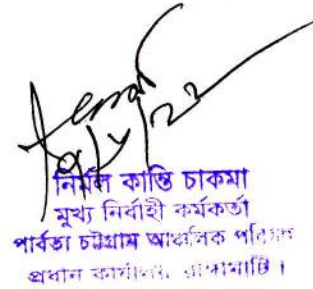 নির্মল কান্তি চাকমা
মুখ্য নির্বাহী কর্মকর্তা
পার্বত্য চট্টগ্রাম আঞ্চলিক পরিষদ
প্রধান কার্যালয়, রাঙ্গামাটি ।